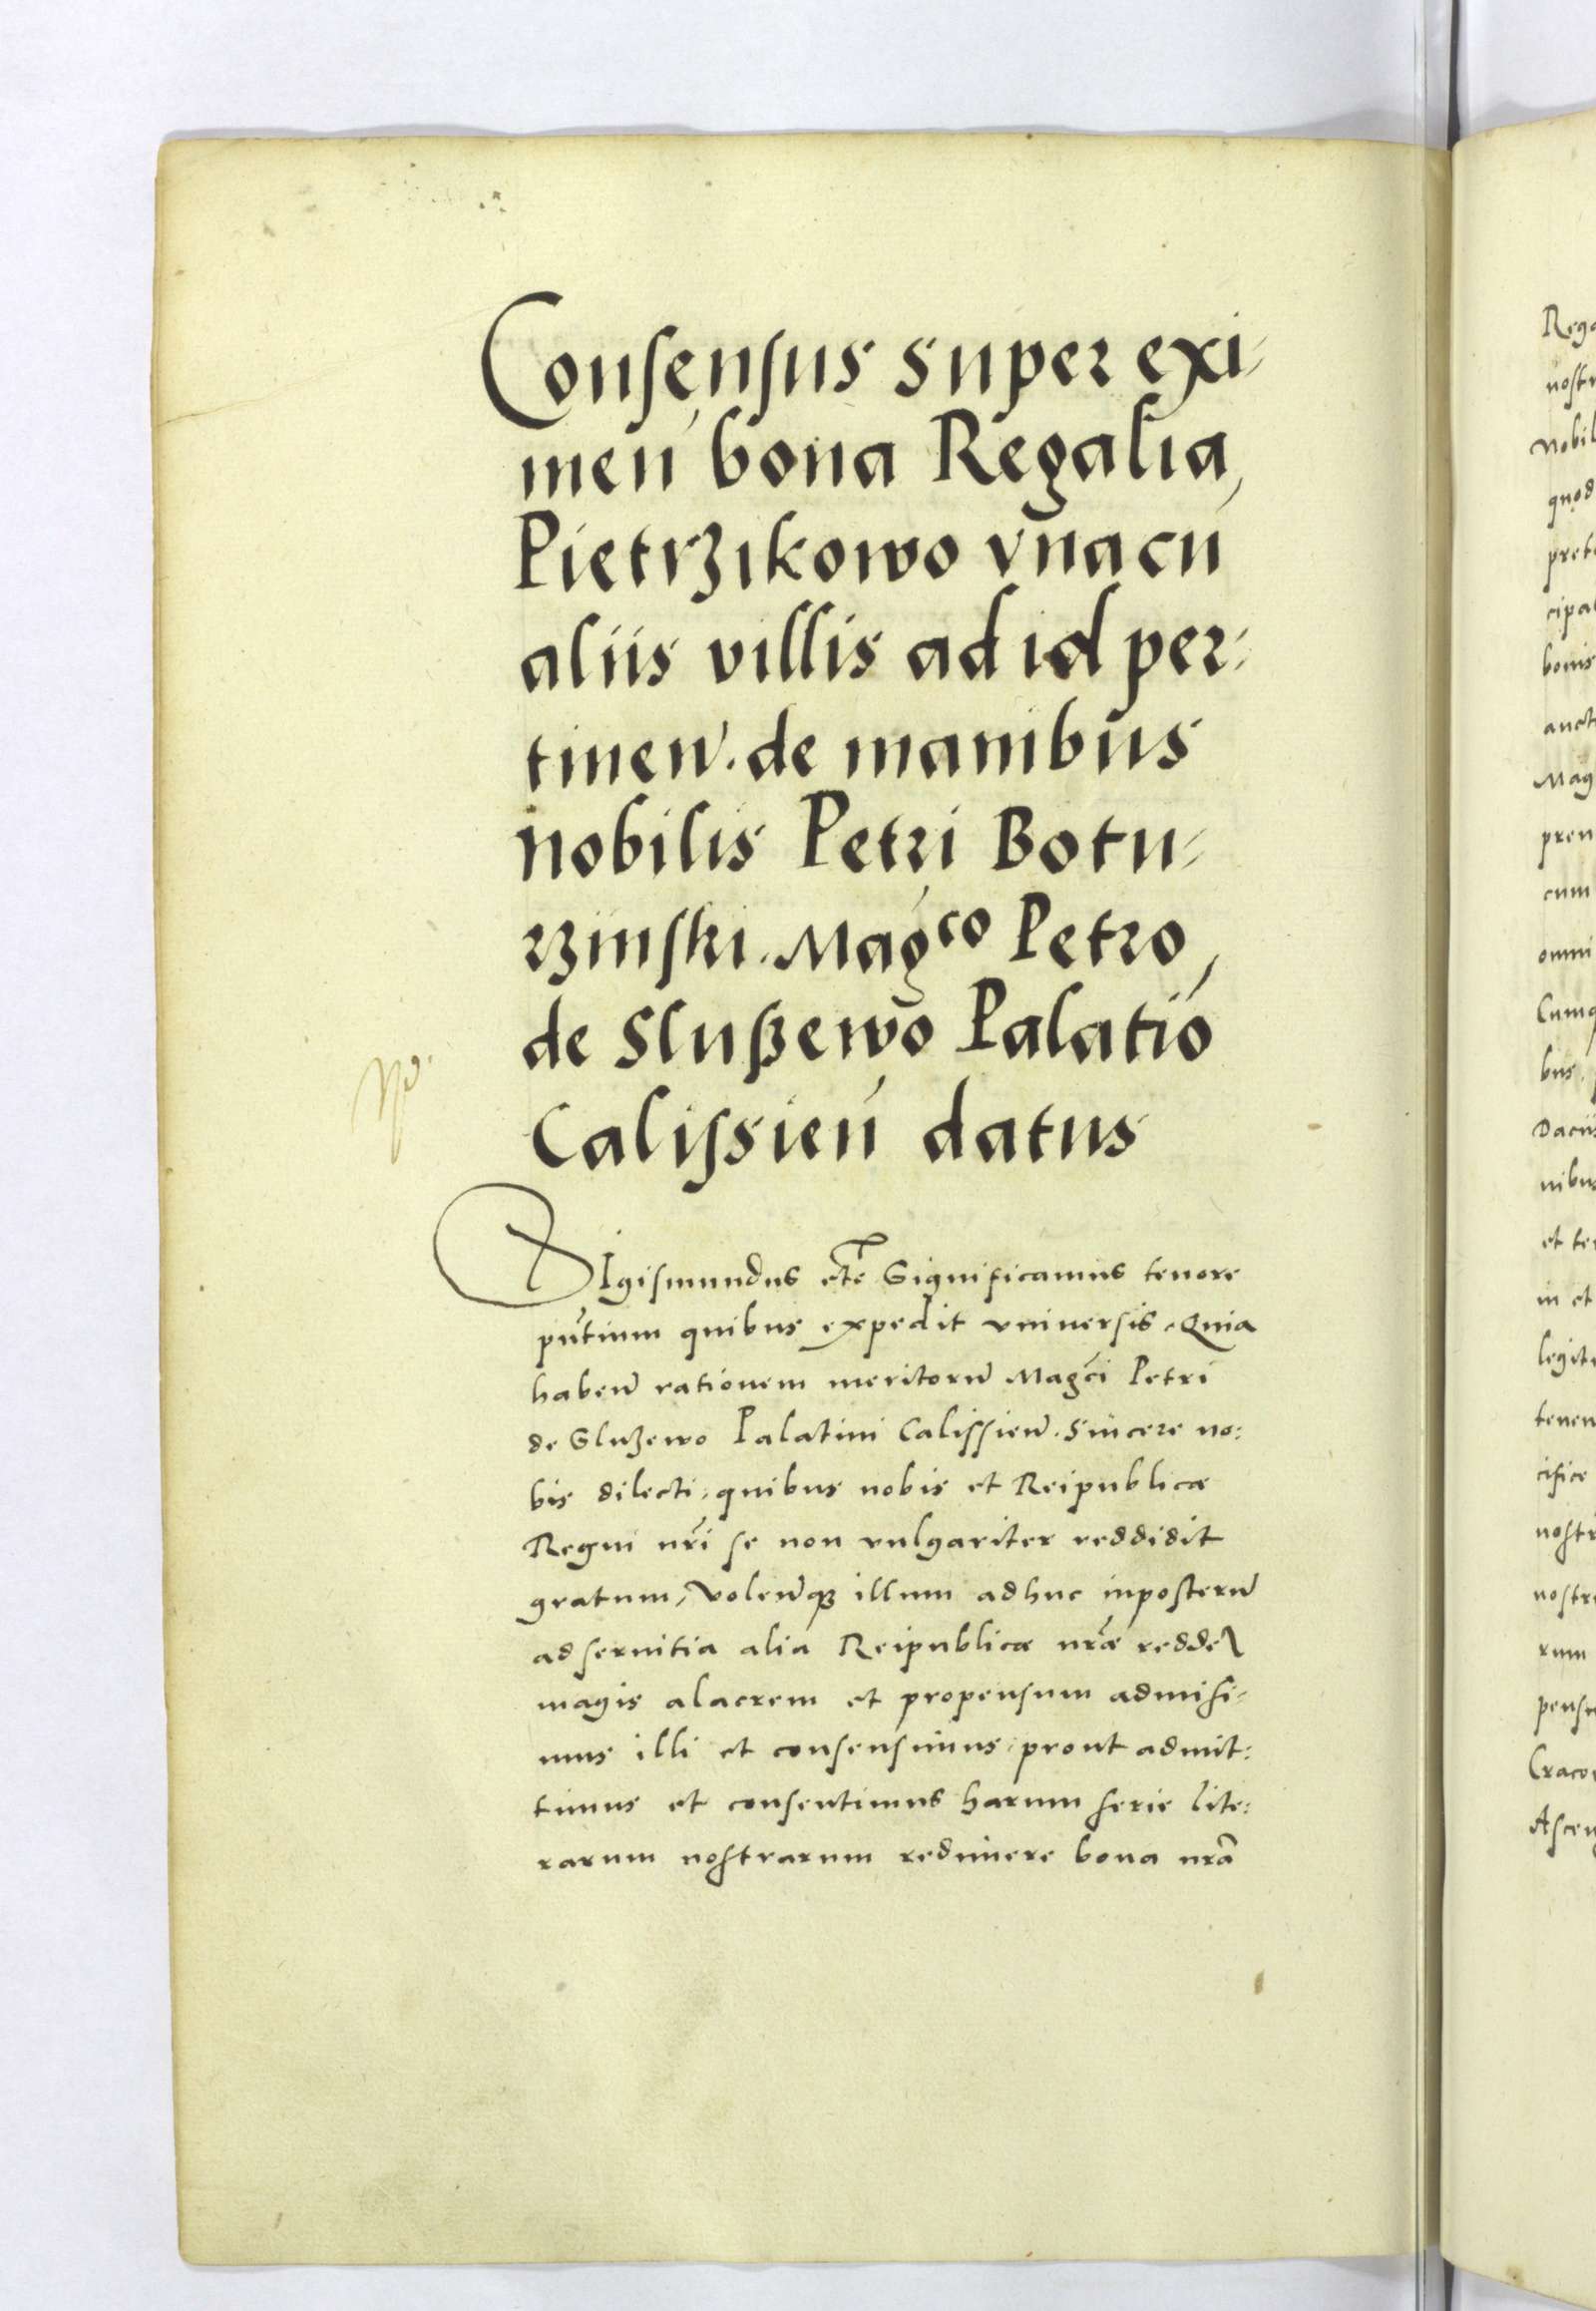 Consensus super exi-
men̄ bona Regalia
Pietrzikowo vna cū
aliis villis ad id per:
tinen̄. de manibus
nobilis Petri Botu-
rzinski. Mag̃co Petro
de Slußewo Palatiō
Calissień datus
SIgismundus etc̃ Significamus tenore
pñtium quibus expedit vniuersis. Quia
haben̄ rationem meritorū Mag̃ci Petri
de Služewo Palatini Calissien̄. Sincere no:
bis dilecti, quibus nobis et Reipublicæ
Regni nr̃i se non vulgariter reddidit
gratum, volen̄qꝫ illum adhuc inposterū
ad seruitia alia Reipublicæ nr̃æ redder̃
magis alacrem et propensum admisi-
mus illi et consensimus, prout admit:
timus et consentimus harum serie lite:
rarum nostrarum redimere bona nr̃a
Rega
nostr
nobil
quod
prete
cipal
bonis
auct
Mag
pren
cum
omni
Cumq
bus
Daciis
nibus
et te
in et
legit
tenen
cifice
nostr
nostr
rum
pens
Craco
Ascen